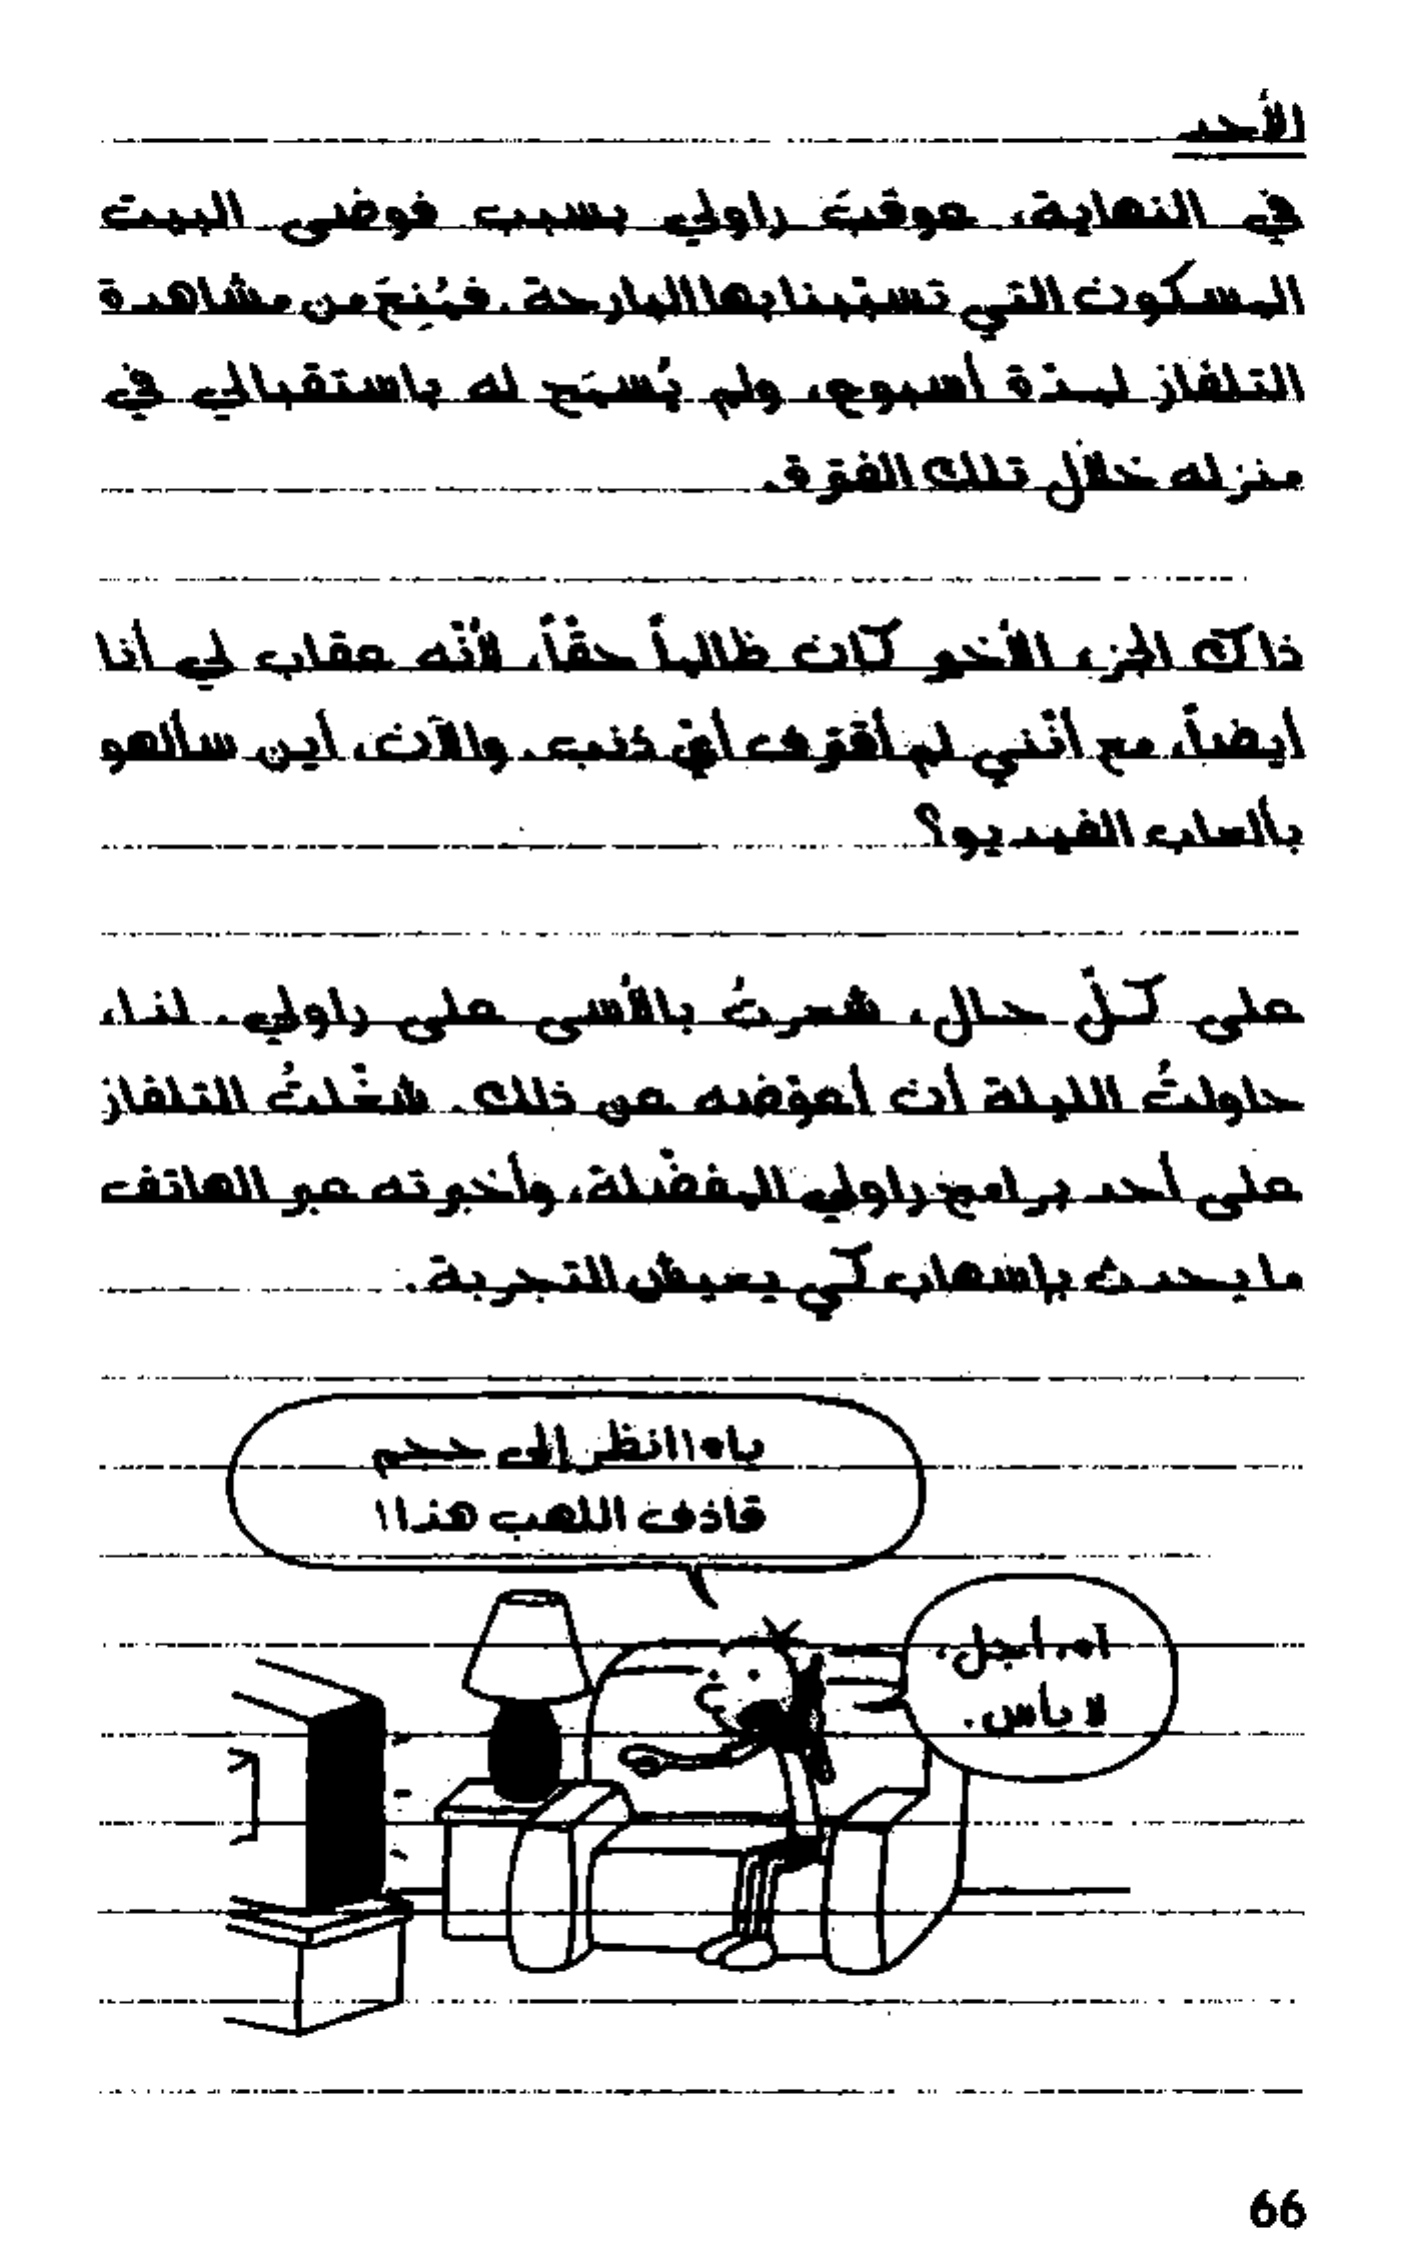 الأحد
في النهاية، عوقبَ راولي بسبب فوضى البيت
المسكون التي تسبّبنا بها البارحة. فمُنِعَ من مشاهدة
التلفاز لمدّة أسبوع، ولم يُسمَح له باستقبالي في
منزله خلال تلك الفترة.
ذاك الجزء الأخير كان ظالماً حقّاً، لأنّه عقاب لي أنا
أيضاً، مع أنّني لم أقترف أيّ ذنب. والآن، أين سألهو
بألعاب الفيديو؟
على كلّ حال، شعرتُ بالأسى على راولي. لذا،
حاولتُ الليلة أن أعوّضه عن ذلك. شغّلتُ التلفاز
على أحد برامج راولي المفضّلة، وأخبرته عبر الهاتف
ما يحدث بإسهاب كي يعيش التجربة.
ياه! انظر إلى حجم
قاذف اللهب هذا!
آه، أجل،
لا بأس.
66